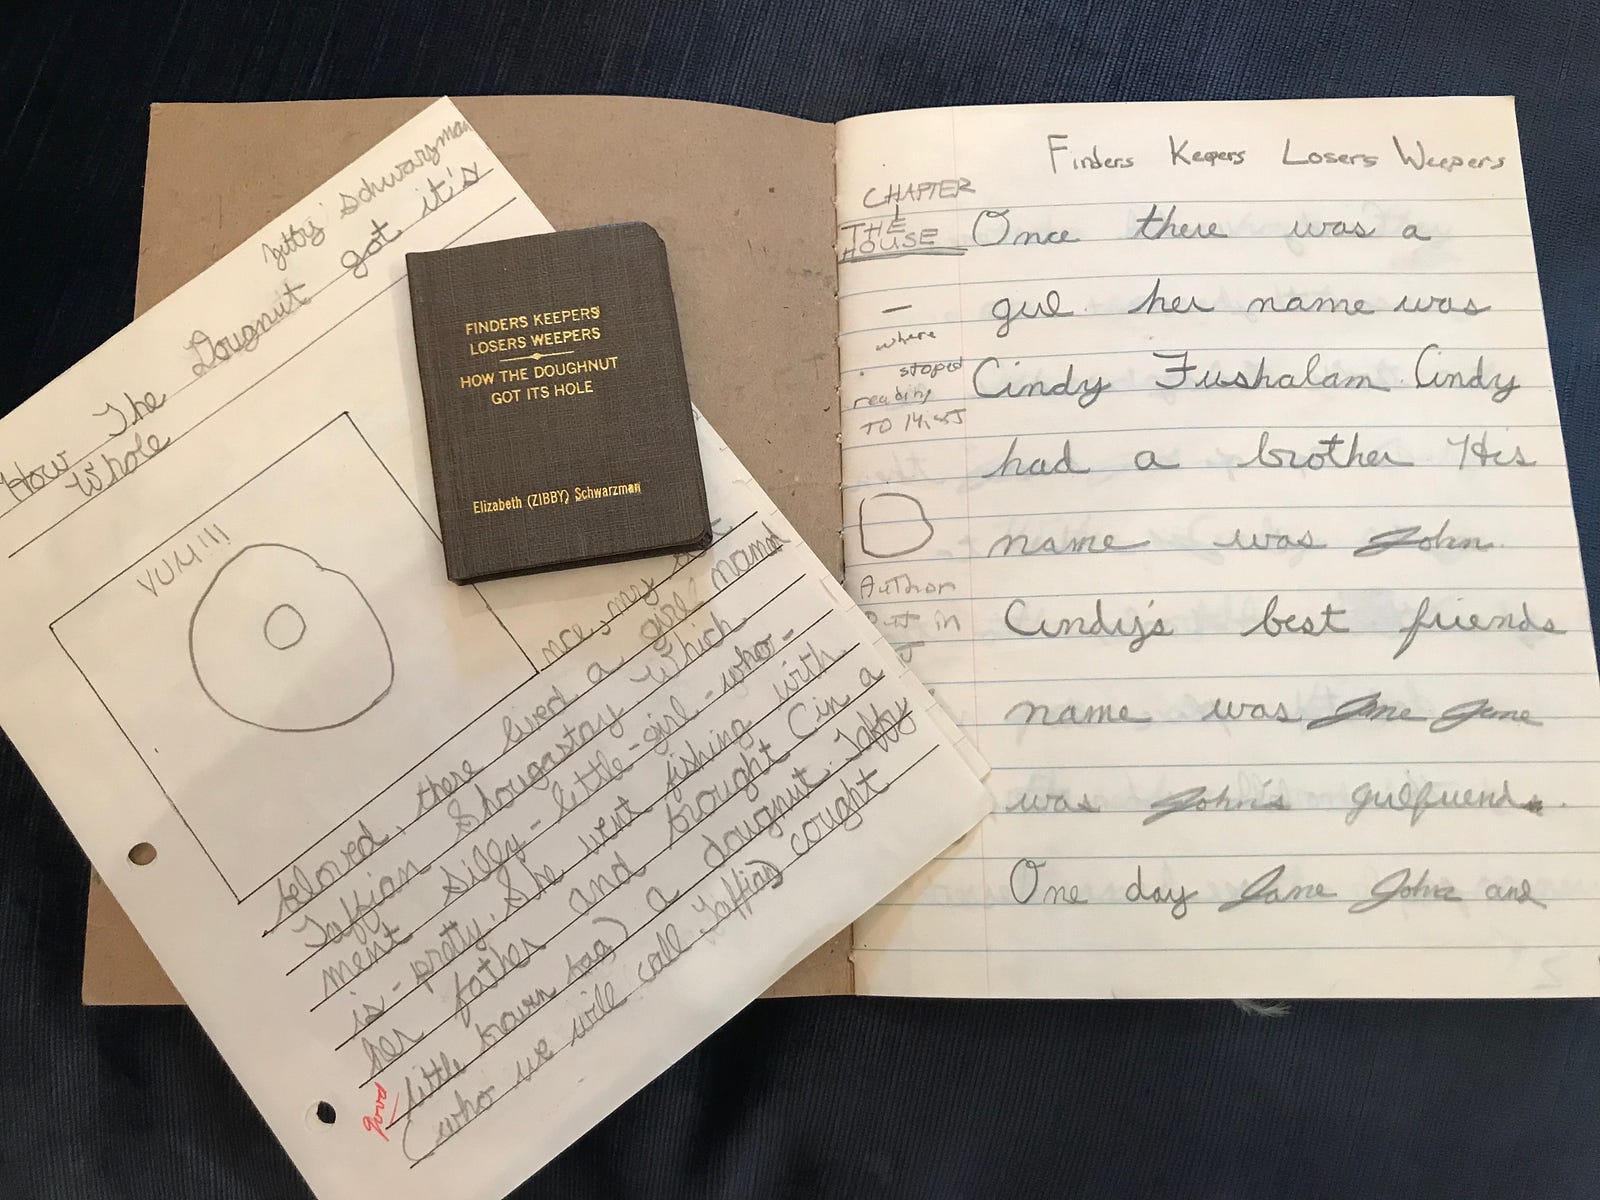 Zibby Schwarzman
How The Dougnut got it's
Whole
YUM!!!
nce, my best
beloved, there lived a girl namd
Taffian Shougastay Which
ment Silly-little-girl-who-
is-pretty. She went fishing with
her father and brought (in a
little brown bag) a dougnut. Taffy
(who we will call Taffian) cought
good
FINDERS KEEPERS
LOSERS WEEPERS
HOW THE DOUGHNUT
GOT ITS HOLE
Elizabeth (ZIBBY) Schwarzman
Finders Keepers Losers Weepers
CHAPTER
1
THE
HOUSE
where
stoped
reading
TO 14,45
Author
Put in
Once there was a
girl. her name was
Cindy Fushalam. Cindy
had a brother His
name was John.
Cindy's best friends
name was Jane Jane
was John's girlfriend.
One day Jane John and